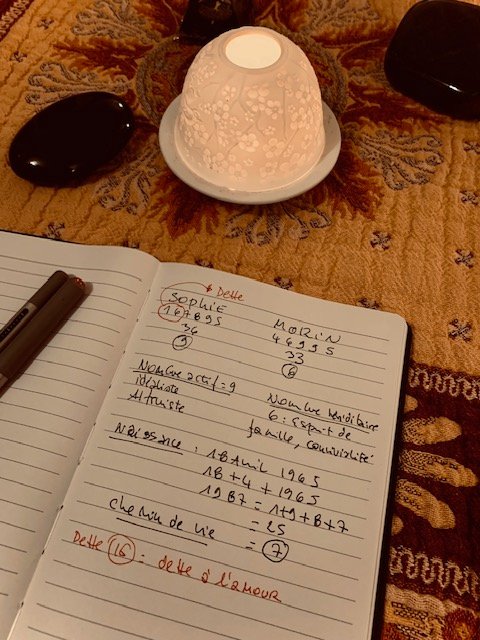 * Dette
SOPHIE
167895
36
9
MORIN
46995
33
6
Nombre actif = 9
idéaliste
Altruiste
Nombre héréditaire
6 : esprit de
famille, convivialité
Naissance : 18 Avril 1965
18 + 4 + 1965
1987 = 1+9+8+7
= 25
Chemin de vie = 7
Dette 16 : dette à l'amour